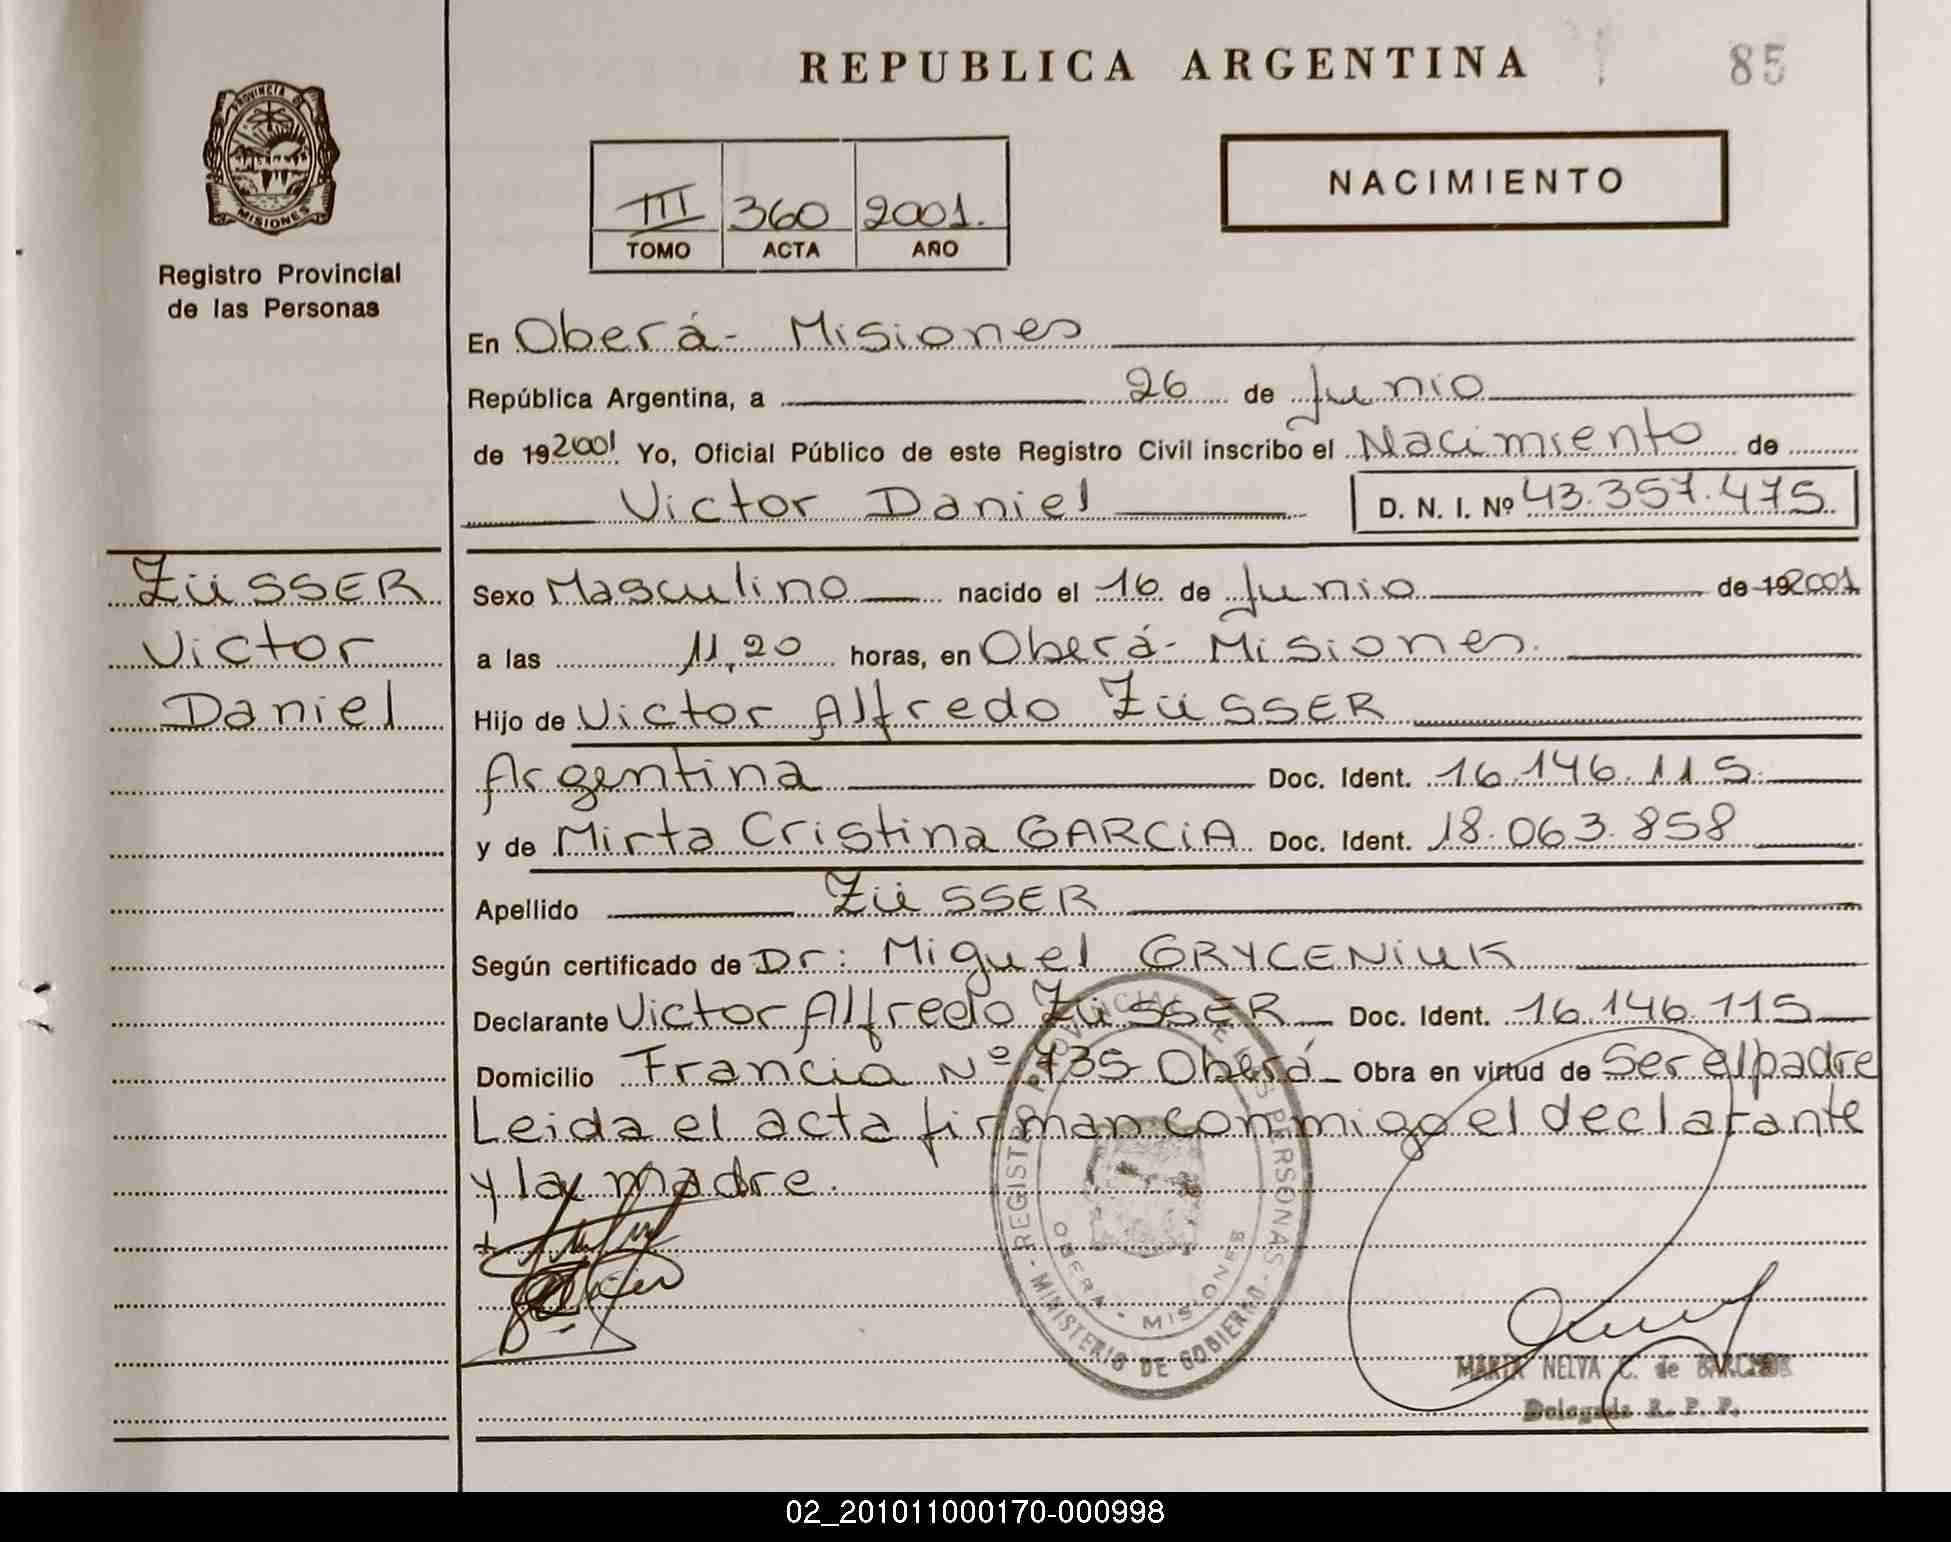 REPUBLICA ARGENTINA
85
PROVINCIA DE
MISIONES
Registro Provincial
de las Personas
III 360 2001.
TOMO ACTA AÑO
NACIMIENTO
En Oberá - Misiones
República Argentina, a 26 de Junio
de 192001 Yo, Oficial Público de este Registro Civil inscribo el Nacimiento de
Victor Daniel D. N. I. Nº 43.357.475
ZÜSSER
Victor
Daniel
Sexo Masculino nacido el 16 de Junio de 192001
a las 11,20 horas, en Oberá - Misiones.
Hijo de Victor Alfredo ZÜSSER
Argentina Doc. Ident. 16.146.115
y de Mirta Cristina GARCiA Doc. Ident. 18.063.858
Apellido ZÜSSER
Según certificado de Dr: Miguel GRYCENiUK
Declarante Victor Alfredo ZÜSSER Doc. Ident. 16.146.115
Domicilio Francia Nº 735 Oberá Obra en virtud de Ser el padre
Leida el acta firman conmigo el declarante
y la madre.
REGISTRO PROVINCIAL DE LAS PERSONAS - MINISTERIO DE GOBIERNO -
OBERA - MISIONES
MARTA NELVA C. de
Delegada R. P. P.
02_201011000170-000998